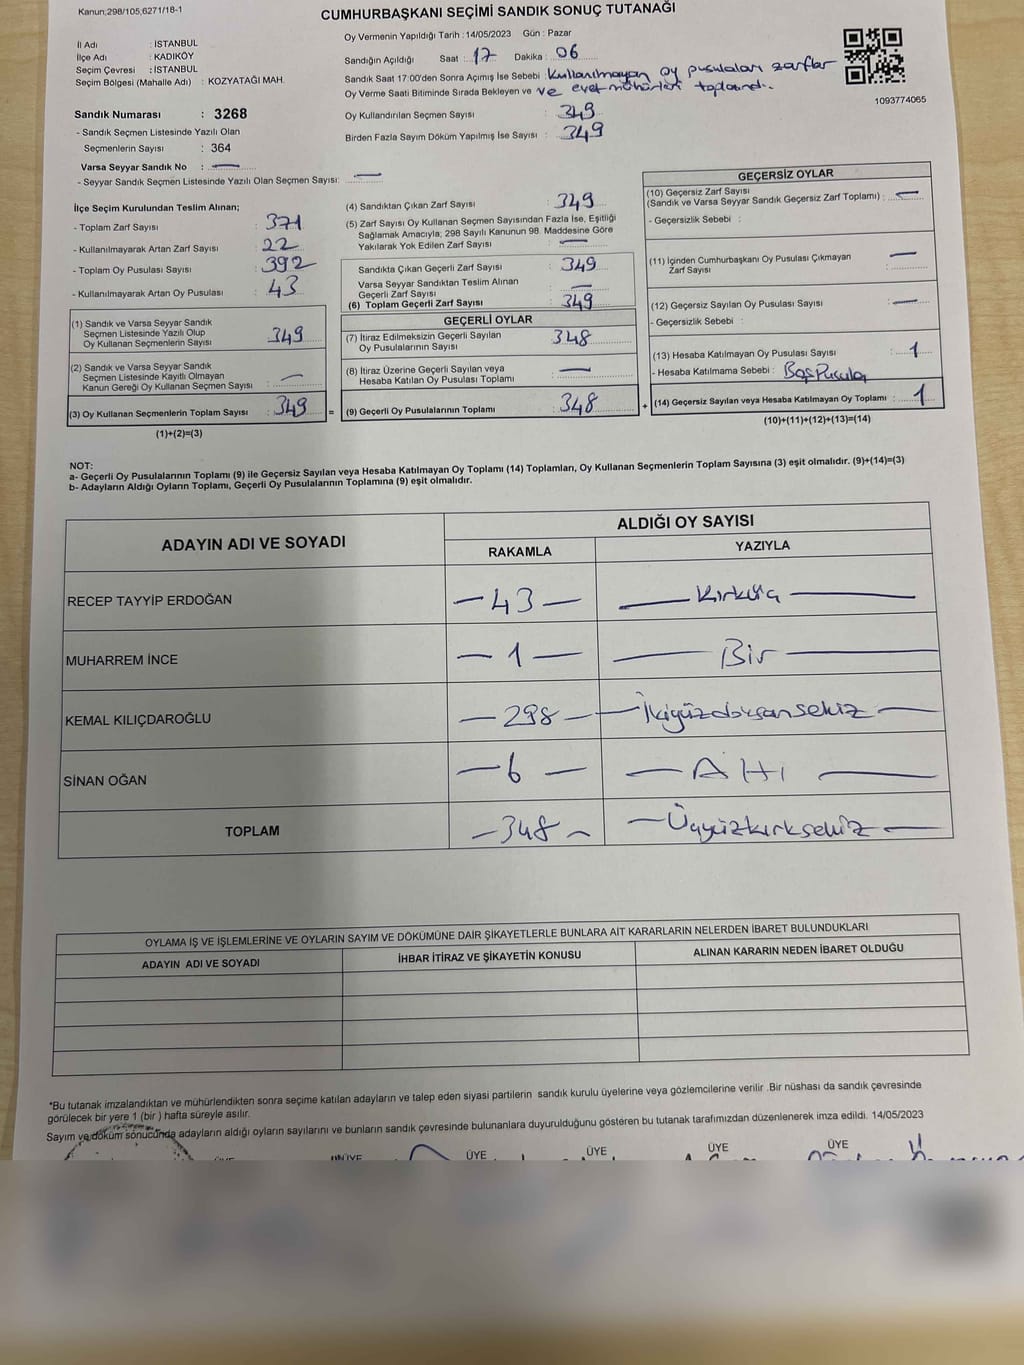 Kanun;298/105,6271/18-1
CUMHURBAŞKANI SEÇİMİ SANDIK SONUÇ TUTANAĞI
İl Adı : İSTANBUL
İlçe Adı : KADIKÖY
Seçim Çevresi : İSTANBUL
Seçim Bölgesi (Mahalle Adı) : KOZYATAĞI MAH.
Sandık Numarası : 3268
- Sandık Seçmen Listesinde Yazılı Olan
Seçmenlerin Sayısı : 364
Varsa Seyyar Sandık No : —
- Seyyar Sandık Seçmen Listesinde Yazılı Olan Seçmen Sayısı: —
Oy Vermenin Yapıldığı Tarih : 14/05/2023 Gün : Pazar
Sandığın Açıldığı Saat : 17 Dakika : 06
Sandık Saat 17:00'den Sonra Açımış İse Sebebi : Kullanılmayan oy pusulaları zarflar
Oy Verme Saati Bitiminde Sırada Bekleyen ve ve evet mühürleri toplandı.
Oy Kullandırılan Seçmen Sayısı : 349
Birden Fazla Sayım Döküm Yapılmış İse Sayısı : 349
1093774065
İlçe Seçim Kurulundan Teslim Alınan;
- Toplam Zarf Sayısı : 371
- Kullanılmayarak Artan Zarf Sayısı : 22
- Toplam Oy Pusulası Sayısı : 392
- Kullanılmayarak Artan Oy Pusulası : 43
(1) Sandık ve Varsa Seyyar Sandık
Seçmen Listesinde Yazılı Olup
Oy Kullanan Seçmenlerin Sayısı : 349
(2) Sandık ve Varsa Seyyar Sandık
Seçmen Listesinde Kayıtlı Olmayan
Kanun Gereği Oy Kullanan Seçmen Sayısı : —
(3) Oy Kullanan Seçmenlerin Toplam Sayısı : 349 =
(1)+(2)=(3)
(4) Sandıktan Çıkan Zarf Sayısı : 349
(5) Zarf Sayısı Oy Kullanan Seçmen Sayısından Fazla İse, Eşitliği
Sağlamak Amacıyla; 298 Sayılı Kanunun 98. Maddesine Göre
Yakılarak Yok Edilen Zarf Sayısı : —
Sandıkta Çıkan Geçerli Zarf Sayısı : 349
Varsa Seyyar Sandıktan Teslim Alınan
Geçerli Zarf Sayısı : —
(6) Toplam Geçerli Zarf Sayısı : 349
GEÇERLİ OYLAR
(7) İtiraz Edilmeksizin Geçerli Sayılan
Oy Pusulalarının Sayısı : 348
(8) İtiraz Üzerine Geçerli Sayılan veya
Hesaba Katılan Oy Pusulası Toplamı : —
(9) Geçerli Oy Pusulalarının Toplamı : 348 +
GEÇERSİZ OYLAR
(10) Geçersiz Zarf Sayısı
(Sandık ve Varsa Seyyar Sandık Geçersiz Zarf Toplamı) : —
- Geçersizlik Sebebi :
(11) İçinden Cumhurbaşkanı Oy Pusulası Çıkmayan
Zarf Sayısı : —
(12) Geçersiz Sayılan Oy Pusulası Sayısı : —
- Geçersizlik Sebebi :
(13) Hesaba Katılmayan Oy Pusulası Sayısı : 1
- Hesaba Katılmama Sebebi : Boş Pusula
(14) Geçersiz Sayılan veya Hesaba Katılmayan Oy Toplamı : 1
(10)+(11)+(12)+(13)=(14)
NOT:
a- Geçerli Oy Pusulalarının Toplamı (9) ile Geçersiz Sayılan veya Hesaba Katılmayan Oy Toplamı (14) Toplamları, Oy Kullanan Seçmenlerin Toplam Sayısına (3) eşit olmalıdır. (9)+(14)=(3)
b- Adayların Aldığı Oyların Toplamı, Geçerli Oy Pusulalarının Toplamına (9) eşit olmalıdır.
ADAYIN ADI VE SOYADI
ALDIĞI OY SAYISI
RAKAMLA YAZIYLA
RECEP TAYYİP ERDOĞAN — 43 — — Kırküç —
MUHARREM İNCE — 1 — — Bir —
KEMAL KILIÇDAROĞLU — 298 — — İkiyüzdoksansekiz —
SİNAN OĞAN — 6 — — Altı —
TOPLAM — 348 — — Üçyüzkırksekiz —
OYLAMA İŞ VE İŞLEMLERİNE VE OYLARIN SAYIM VE DÖKÜMÜNE DAİR ŞİKAYETLERLE BUNLARA AİT KARARLARIN NELERDEN İBARET BULUNDUKLARI
ADAYIN ADI VE SOYADI İHBAR İTİRAZ VE ŞİKAYETİN KONUSU ALINAN KARARIN NEDEN İBARET OLDUĞU
*Bu tutanak imzalandıktan ve mühürlendikten sonra seçime katılan adayların ve talep eden siyasi partilerin sandık kurulu üyelerine veya gözlemcilerine verilir .Bir nüshası da sandık çevresinde
görülecek bir yere 1 (bir ) hafta süreyle asılır.
Sayım ve döküm sonucunda adayların aldığı oyların sayılarını ve bunların sandık çevresinde bulunanlara duyurulduğunu gösteren bu tutanak tarafımızdan düzenlenerek imza edildi. 14/05/2023
ÜYE ÜYE ÜYE ÜYE